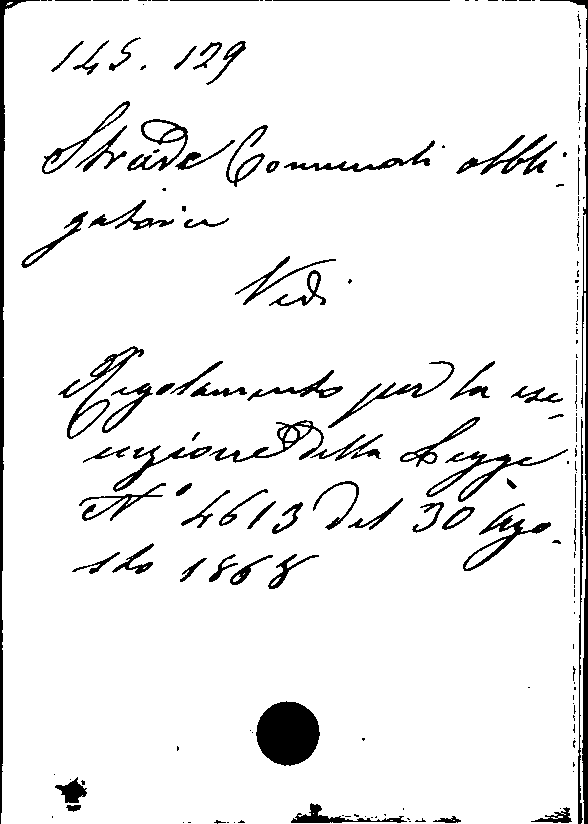 145. 129
Strade Comunali obbli-
gatorie
Vedi
Regolamento per la ese-
cuzione della Legge
N° 4613 del 30 Ago-
sto 1868